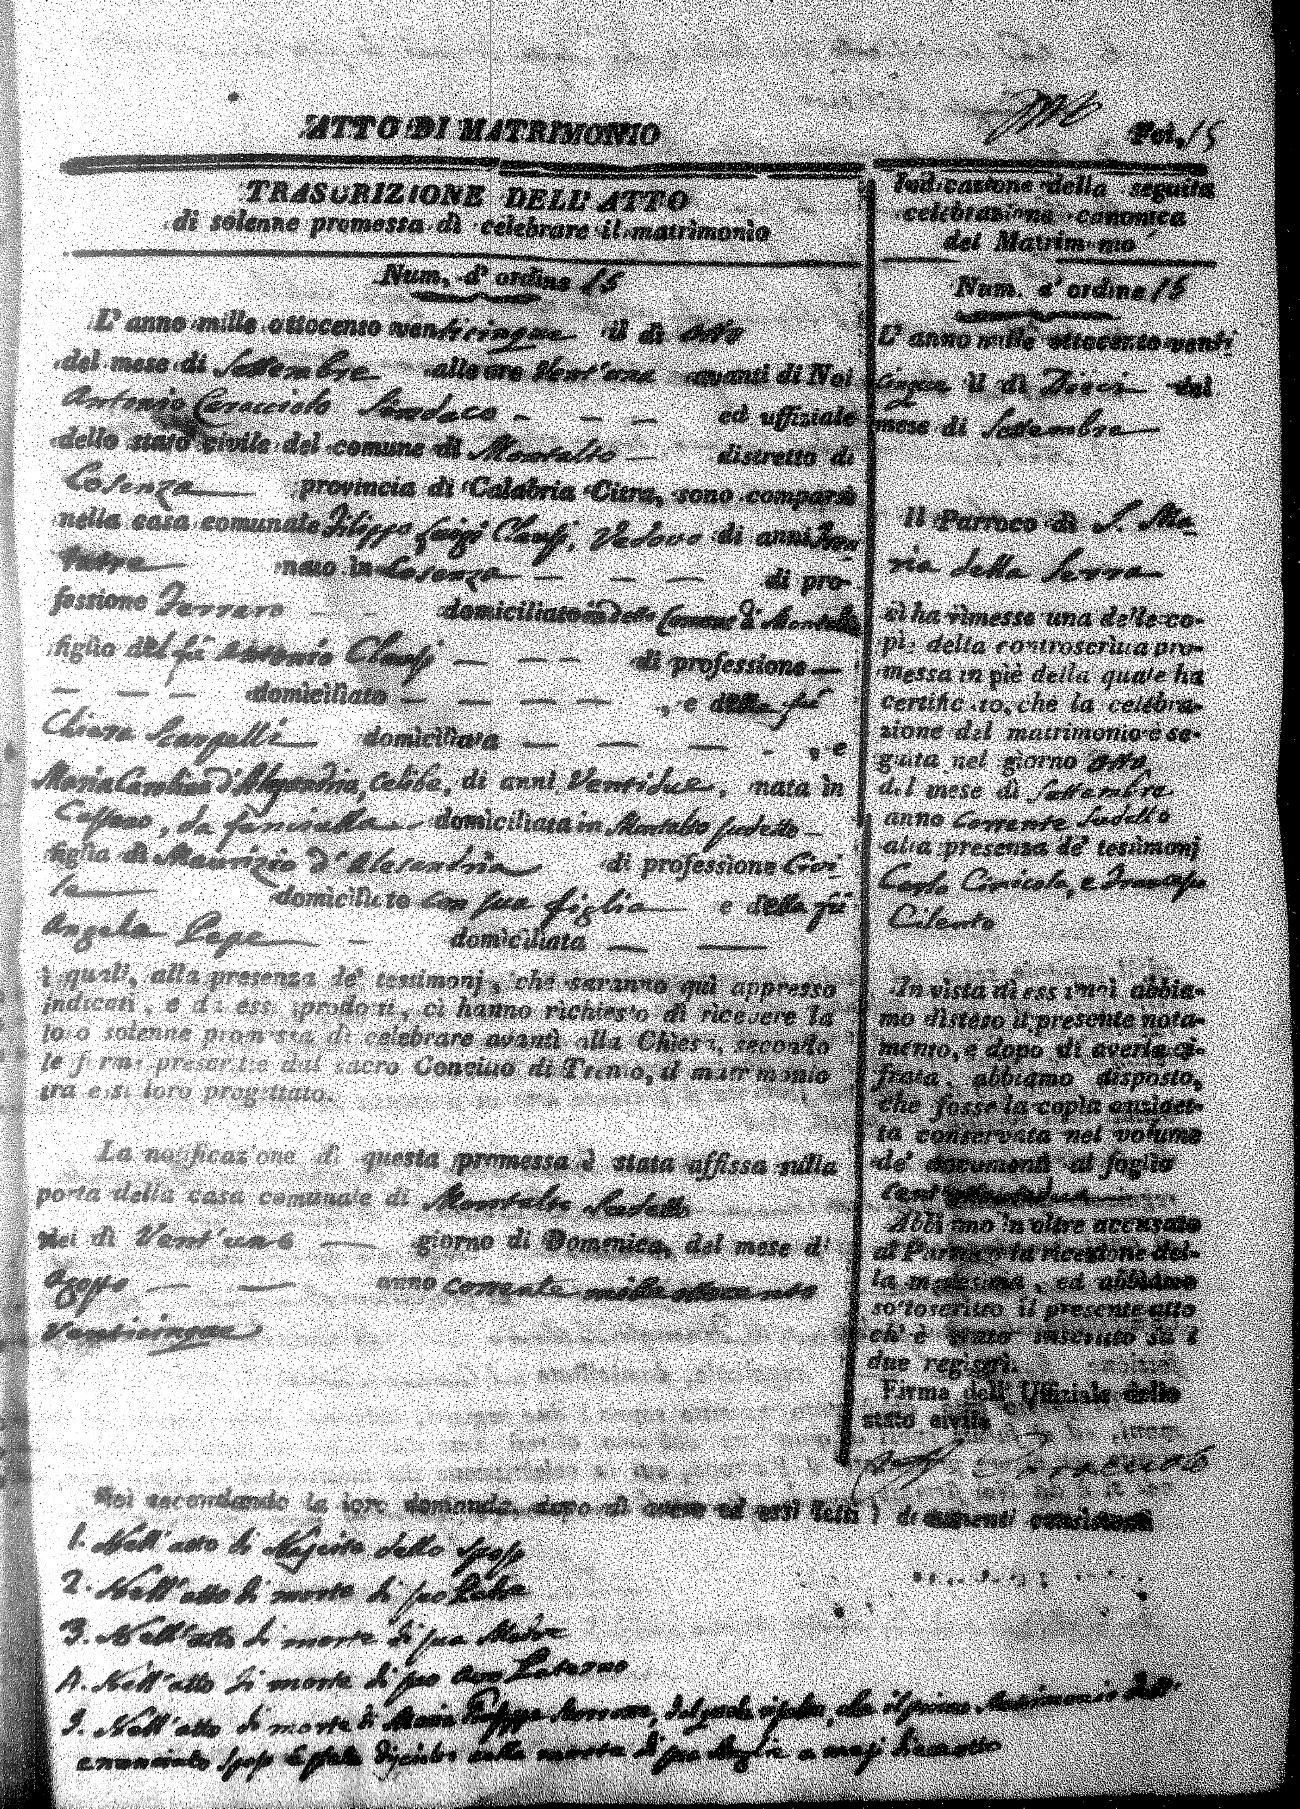 ATTO DI MATRIMONIO
Fol. 15
TRASCRIZIONE DELL' ATTO
di solenne promessa di celebrare il matrimonio
Num. d' ordine 15
L' anno mille ottocento venticinque il di otto
del mese di Settembre alle ore Vent'una avanti di Noi
Antonio Caracciolo Sindaco ed uffiziale
dello stato civile del comune di Montalto distretto di
Cosenza provincia di Calabria Citra, sono comparsi
nella casa comunale Filippo Luigi Clausi, Vedovo di anni tren
tatre nato in Cosenza di pro-
fessione Ferraro domiciliato in detto Comune di Montalto
figlio del fu Antonio Clausi di professione
domiciliato , e della fu
Chiara Scarpelli domiciliata , e
Maria Carolina d'Alesandria, celibe, di anni Ventidue, nata in
, da fanciulla domiciliata in Montalto sudetto
figlia di Maurizio d'Alesandria di professione Civi-
le domiciliato con sua figlia e della fu
Angela Pepe domiciliata
i quali, alla presenza de' testimonj, che saranno quì appresso
indicati, e da essi prodotti, ci hanno richiesto di ricevere la
loro solenne promessa di celebrare avanti alla Chiesa, secondo
le forme prescritte dal sacro Concilio di Trento, il matrimonio
tra essi loro progettato.
La notificazione di questa promessa è stata affissa sulla
porta della casa comunale di Montalto sudetto
nei di Vent'uno giorno di Domenica, del mese di
Agosto anno corrente mille ottocento
Venticinque
Indicazione della seguita
celebrazione canonica
del Matrimonio
Num. d' ordine 15
L' anno mille ottocento venti
cinque il di Dieci del
mese di Settembre
Il Parroco di S. Ma-
ria della Serra
ci ha rimesse una delle co-
pie della controscritta pro-
messa in piè della quale ha
certificato, che la celebra-
zione del matrimonio è se-
guita nel giorno otto
del mese di Settembre
anno corrente sudetto
alla presenza de' testimonj
Carlo Cinicolo, e Francesco
Cilento
In vista di essi noi abbia-
mo disteso il presente nota-
mento, e dopo di averla ci-
frata, abbiamo disposto,
che fosse la copia anzidet-
ta conservata nel volume
de' documenti al foglio
Abbiamo in oltre accusato
al Parroco la ricezione del-
la medesima, ed abbiamo
sottoscritto il presente atto
ch' è stato inscritto su i
due registri.
Firma dell' Uffiziale dello
stato civile
Caracciolo
Noi secondando la loro domanda, dopo di avere ad essi letti i documenti consistenti
1. Nell'atto di Nascita dello sposo
2. Nell'atto di morte di suo Padre
3. Nell'atto di morte di sua Madre
4. Nell'atto di morte di suo Avo Paterno
5. Nell'atto di morte di Maria Giuseppa, dal quale risulta, che il primo Matrimonio dell'
enunciato sposo colla morte di sua Moglie